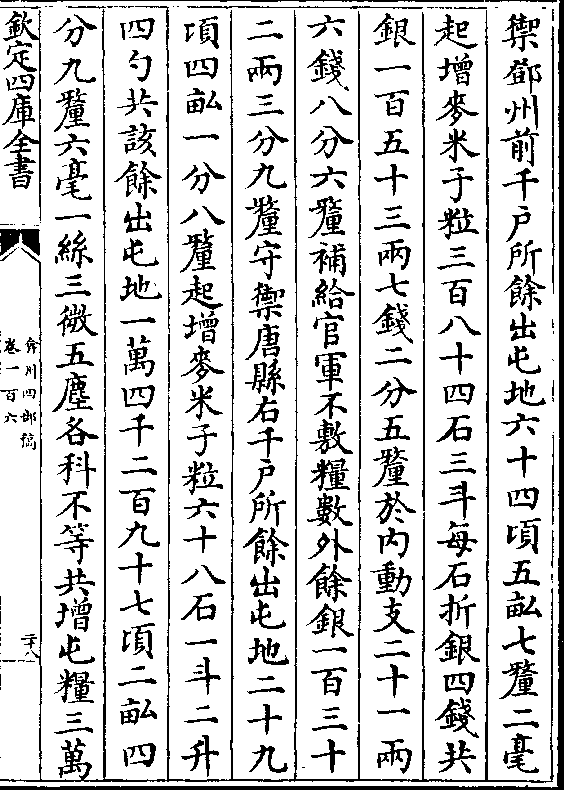 禦鄧州前千戶所餘出屯地六十四頃五畝七釐二毫
起增麥米子粒三百八十四石三斗每石折銀四錢共
銀一百五十三兩七錢二分五釐於内動支二十一兩
六錢八分六釐補給官軍不敷糧數外餘銀一百三十
二兩三分九釐守禦唐縣右千戶所餘出屯地二十九
頃四畝一分八釐起增麥米子粒六十八石一斗二升
四勺共該餘出屯地一萬四千二百九十七頃二畝四
分九釐六毫一絲三微五塵各科不等共增屯糧三萬
欽定四庫全書
弇州四部稿
卷一百六
二十八